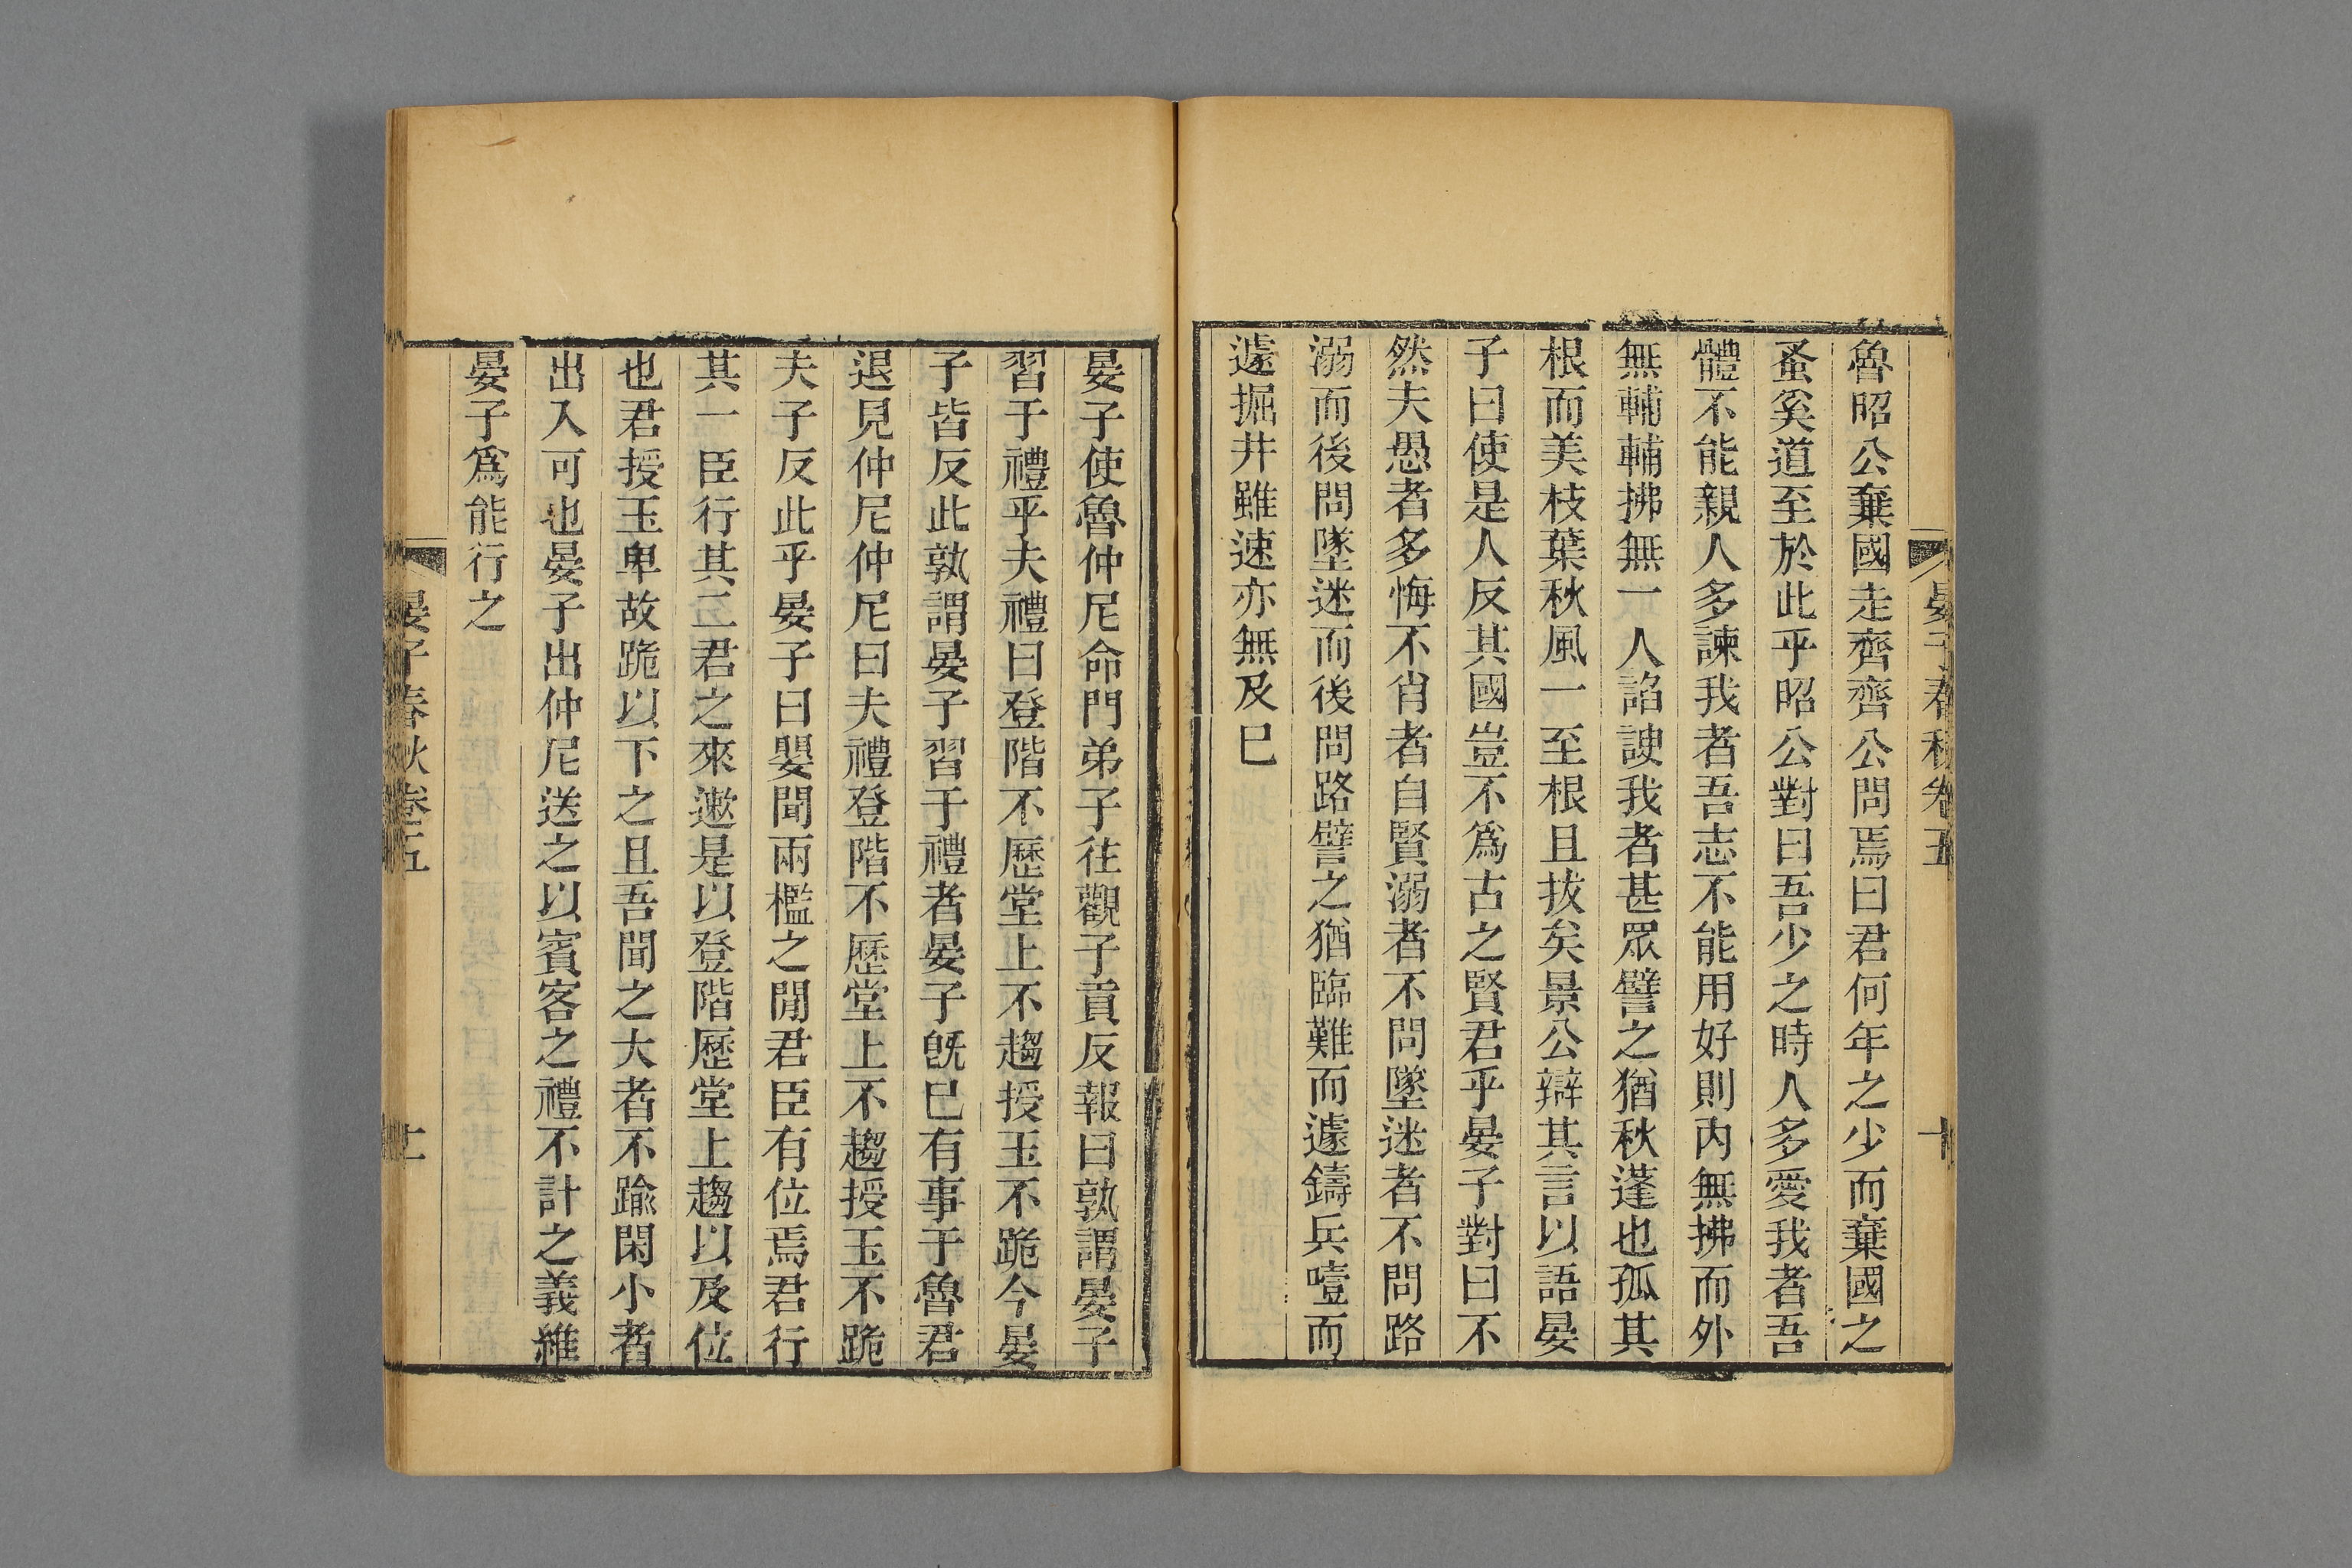 晏子春秋卷五
十
魯昭公棄國走齊齊公問焉曰君何年之少而棄國之
蚤奚道至於此乎昭公對曰吾少之時人多愛我者吾
體不能親人多諫我者吾志不能用好則內無拂而外
無輔輔拂無一人諂諛我者甚眾譬之猶秋蓬也孤其
根而美枝葉秋風一至根且拔矣景公辯其言以語晏
子曰使是人反其國豈不爲古之賢君乎晏子對曰不
然夫愚者多悔不肖者自賢溺者不問墜迷者不問路
溺而後問墜迷而後問路譬之猶臨難而遽鑄兵噎而
遽掘井雖速亦無及已
晏子使魯仲尼命門弟子往觀子貢反報曰孰謂晏子
習于禮乎夫禮曰登階不歷堂上不趨授玉不跪今晏
子皆反此孰謂晏子習于禮者晏子旣已有事于魯君
退見仲尼仲尼曰夫禮登階不歷堂上不趨授玉不跪
夫子反此乎晏子曰嬰聞兩檻之閒君臣有位焉君行
其一臣行其二君之來遬是以登階歷堂上趨以及位
也君授玉卑故跪以下之且吾聞之大者不踰閑小者
出入可也晏子出仲尼送之以賓客之禮不計之義維
晏子爲能行之
晏子春秋卷五